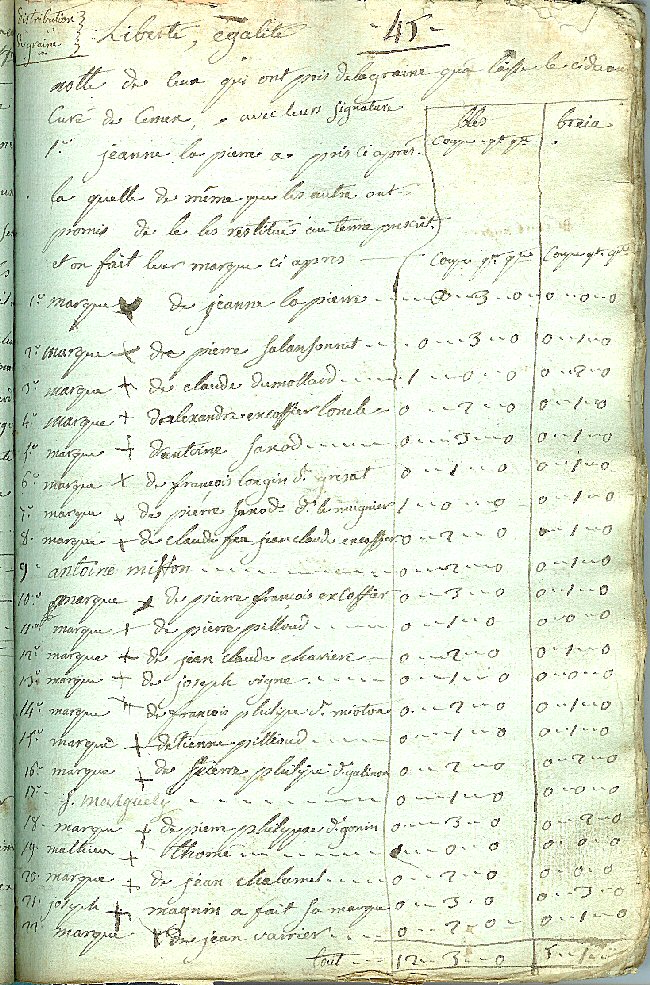 distribution
de graine
Liberté, egalité
45
notte de ceux qui ont pris de la graine qua laisse le cidevan
Curé de Cemen, avec leurs signature
bled
breia
1° jeanne la pierre a pris ci apres
Coupe qt qt
la quelle de même que les autre ont
promis de le les restitué au terme
et on fait leur marque ci apres
Coupe qt qt Coupe qt qt
1° marque de jeanne la pierre 0 3 0 0 0 0
2° marque + de pierre Salansonnet 0 3 0 0 1 0
3° marque + de claude dumollard 1 0 0 0 2 0
4° marque + dalexandre excoffier 0 2 0 0 1 0
5° marque + dantoine janod 0 3 0 0 1 0
6° marque x de françois longin d. 0 1 0 0 1 0
7° marque x de pierre janod d. le mugnier 1 0 0 0 1 0
8° marque + de claude feu jean claude excoffier 0 2 0 0 1 0
9° antoine miffon 0 2 0 0 1 0
10° marque x de pierre françois excoffier 0 3 0 0 1 0
11° marque + de pierre pilloud 0 1 0 0 0 0
12° marque + de jean claude chariere 0 2 0 0 1 0
13° marque + de joseph vigne 0 1 0 0 0 0
14° marque + de françois philipe d. 0 2 0 0 1 0
15° marque + detienne pilloud 0 1 0 0 1 0
16° marque + de pierre philipe d. 0 2 0 0 1 0
17° 0 1 0 0 0 0
18° marque + de pierre philippe d. gonin 0 3 0 0 2 0
19° mathieu + thome 0 0 0 0 0
20° marque + de jean chalamel 0 2 0 0 0 0
21° joseph + magnin a fait sa marque 0 3 0 0 3 0
22° marque x de jean vairier 0 2 0 0 1 0
tout 12 3 0 5 1